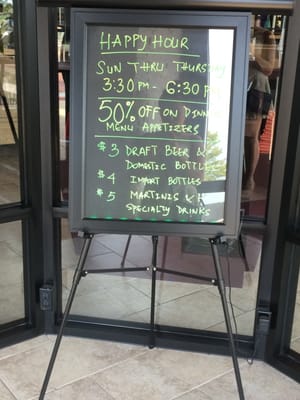 HAPPY HOUR
SUN THRU THURSDAY
3:30PM - 6:30P
50% OFF ON DINN
MENU APPETIZERS
$3 DRAFT BEER &
DOMESTIC BOTTLES
$4 IMPORT BOTTLES
$5 MARTINIS
SPECIALTY DRINKS